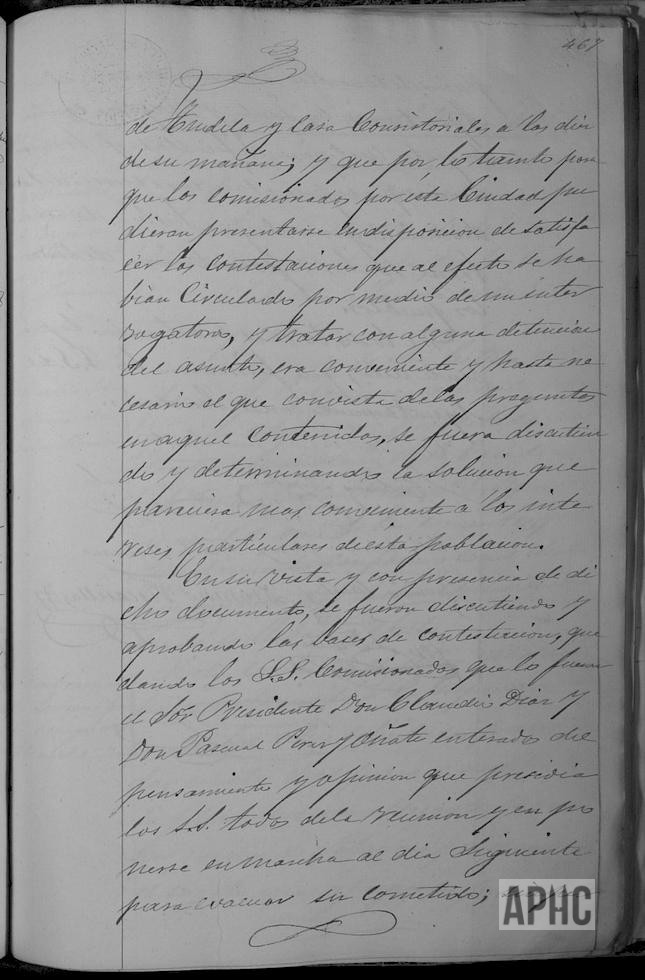 467
de Tudela y Casa Consistoriales a las diez
de su mañana; y que por lo tanto para
que los comisionados por esta Ciudad pu
dieran presentarse en disposicion de satisfa
cer las contestaciones que al efecto se ha
bian Circulado por medio de un inter
rogatorio, y tratar con alguna detencion
del asunto, era conveniente y hasta ne
cesario el que con vista de las preguntas
en aquel contenidas, se fuera discutien
do y determinando la solucion que
pareciera mas conveniente á los inte
reses particulares de esta poblacion.
En su vista y con presencia de di
cho documento, se fueron discutiendo y
aprobando las bases de contestacion, que
dando los S.S. Comisionados que lo fueron
el Sor. Presidente Don Claudio Diaz y
Don Pascual Perez y Oñate enterados del
pensamiento y opinion que presidia
los S.S. todos de la reunion y en po
nerse en marcha al dia Siguiente
para evacuar su Cometido;
APHC